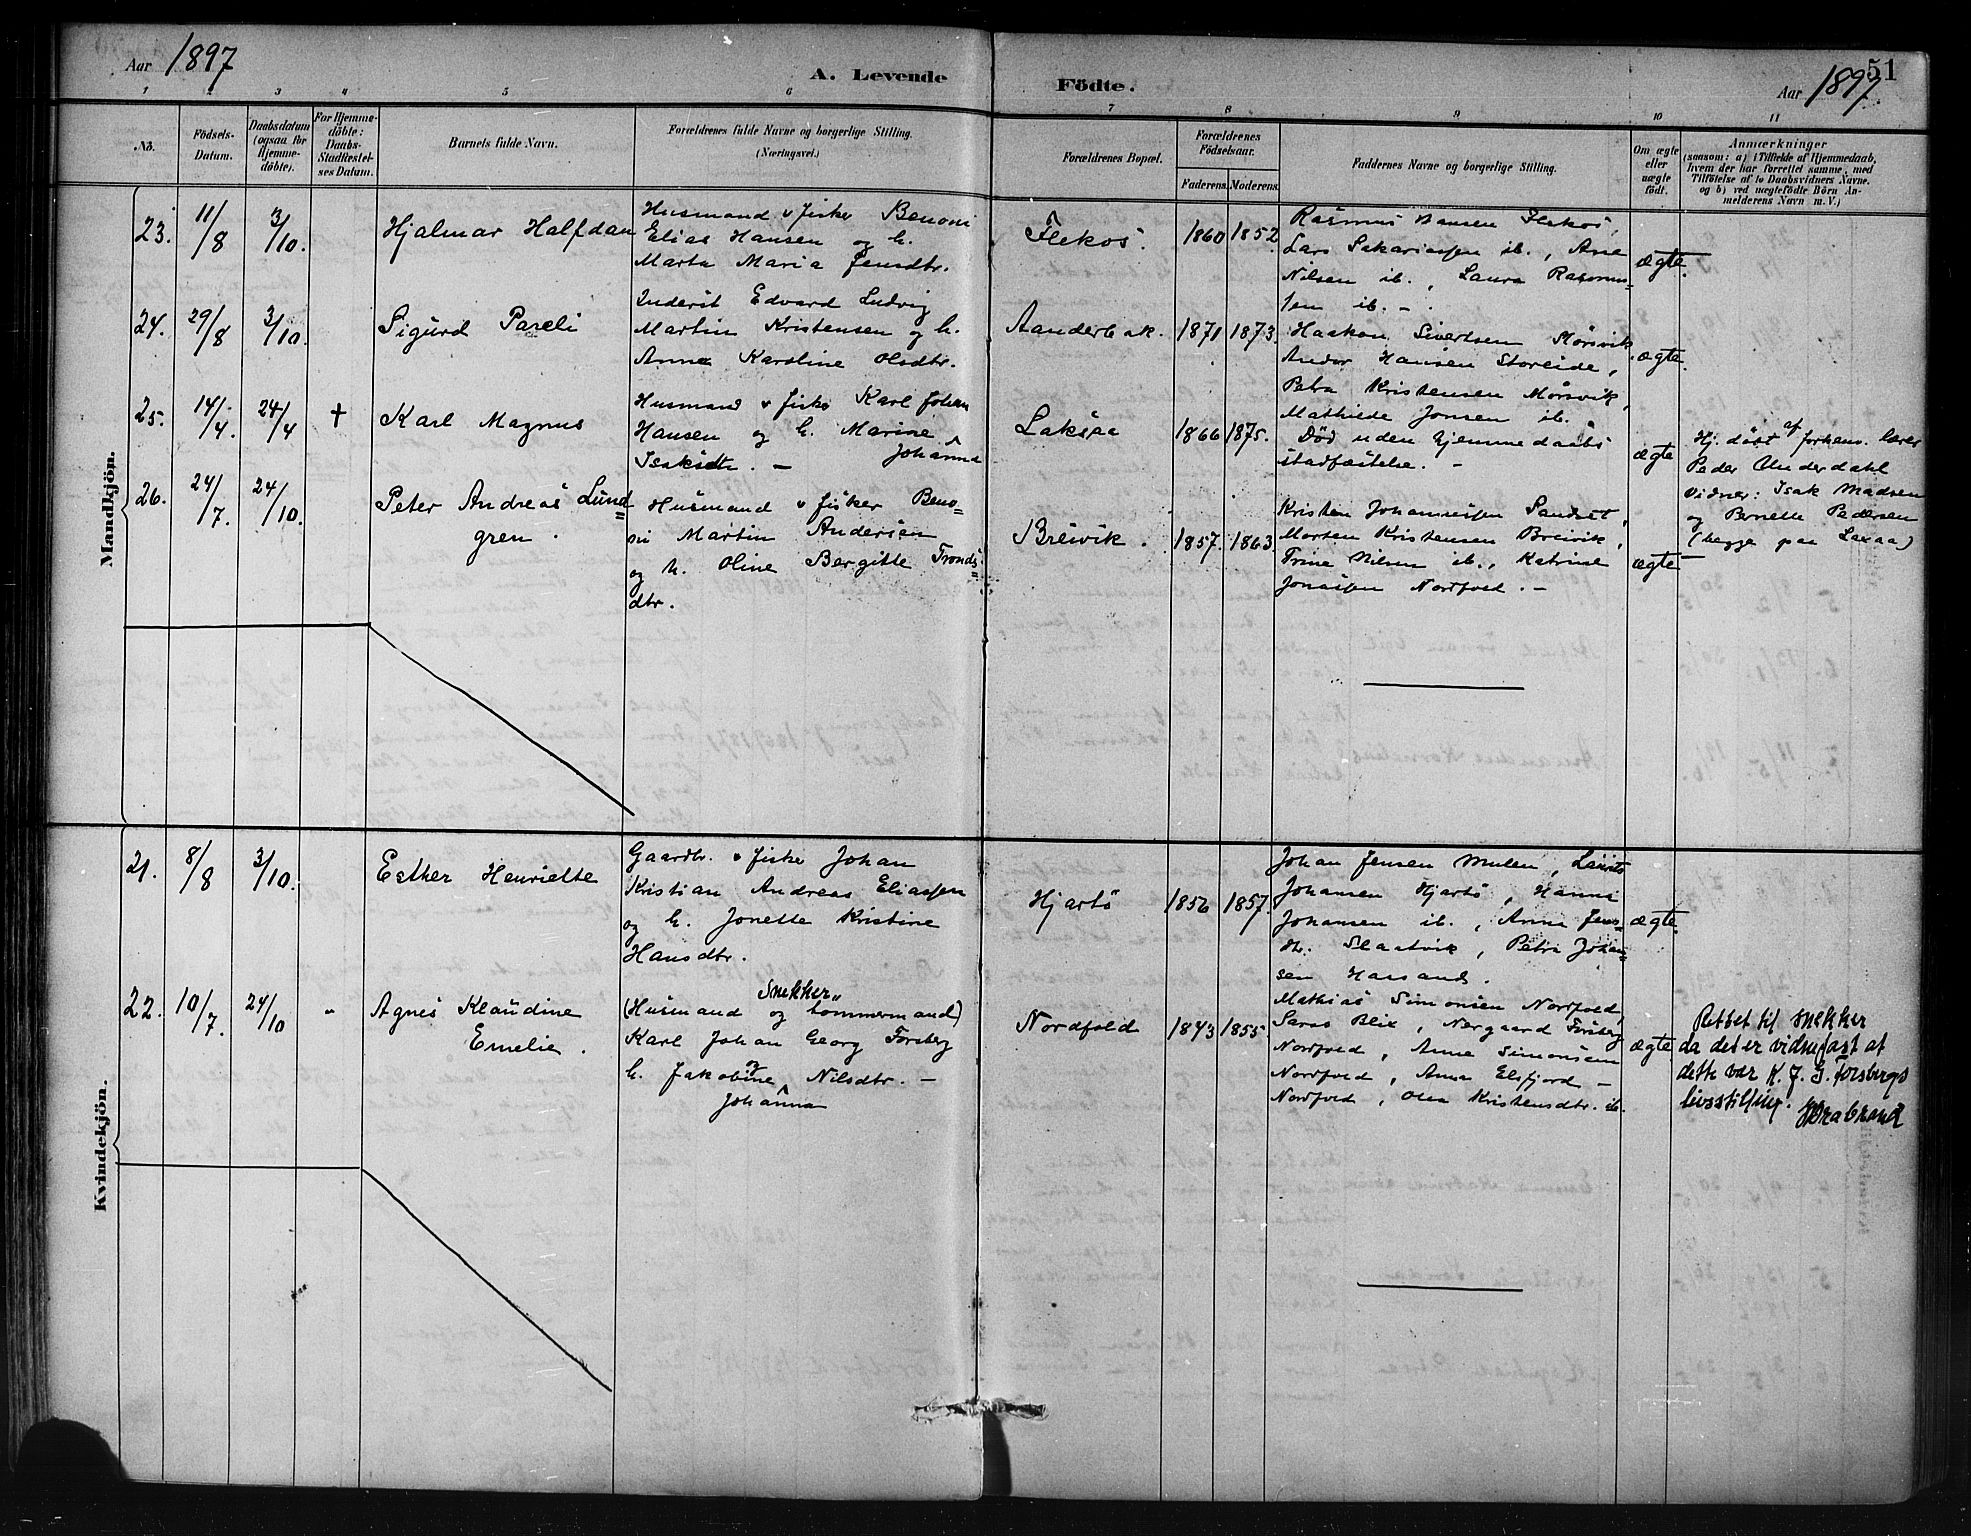 Aar 1897
A. Levende
Födte.
Aar 1897.
51
1 2 3 4 5 6 7 8 9 10 11
No.
Födsels-
Datum.
Daabsdatum
(ogsaa for
Hjemme-
döbte).
For Hjemme-
döbte:
Daabs-
Stadfæstel-
ses Datum.
Barnets fulde Navn.
Forældrenes fulde Navne og borgerlige Stilling.
(Næringsvei.)
Forældrenes Bopæl.
Forældrenes
Födselsaar.
Faderens. Moderens.
Faddernes Navne og borgerlige Stilling.
Om ægte
eller
uægte
födt.
Anmærkninger
(saasom: a) i Tilfælde af Hjemmedaab,
hvem der har forrettet samme, med
Tilföielse af to Daabsvidners Navne,
og b) ved uægtefödte Börn An-
melderens Navn m. V.)
Mandkjön.
23. 11/8 3/10. Hjalmar Halfdan
Husmand & fisker Benoni
Elias Hansen og h.
Marta Maria Jensdtr.
Flekos. 1860 1852
Rasmus Hansen Flekos,
Lars Sakariassen ib., Ane
Nilsen ib., Laura Rasmus-
sen ib. -
ægte.
24. 29/8 3/10. Sigurd Pareli
Inderst Edvard Ludvig
Martin Kristensen og h.
Anna Karoline Olsdtr.
Aanderbak. 1871 1873.
Haakon Sivertsen Mørsvik
Andor Hansen Storeide,
Petra Kristensen Mørsvik,
Mathilde Jonsen ib.
ægte.
25. 14/4. 24/4 † Karl Magnus
Husmand & fisker Karl Johan
Hansen og h. Marine
Johanna
Isaksdtr. -
Laksaa 1866 1875.
Död uden hjemmedaabs
stadfæstelse. -
ægte
Hj. döbt af forhenv. lærer
Peder Anderdahl
Vidner: Isak Madsen
og Bernette Pedersen
(begge paa Laxaa)
26. 24/7. 24/10. Peter Andreas Lund-
gren.
Husmand & fisker Beno-
ni Martin Andersen
og h. Oline Bergitte Tronds-
dtr.
Breivik. 1857. 1863.
Kristen Johannessen Sandset,
Morten Kristensen Breivik,
Trine Nilsen ib., Katrine
Jonassen Nordfold. -
ægte
Kvindekjön.
21. 8/8 3/10. Esther Henriette
Gaardbr. & fisker Johan
Kristian Andreas Eliassen
og h. Jonette Kristine
Hansdtr.
Hjartö 1856 1857.
Johan Jensen Mulen, Laurits
Johansen Hjartö, Hanna
Johansen ib., Anna Jens-
dtr. Slaatvik, Petra Johan-
sen
ægte.
22. 10/7. 24/10 " Agnes Klaudine
Emelie.
Snekker"
(Husmand og tømmermand)
Karl Johan Georg Forsberg
og
h. Jakobine Nilsdtr. -
Johanna
Nordfold 1843 1855.
Mathias Simonsen Nordfold,
Saras Blix, Nergaard Forsberg
Nordfold, Anne Simonsen
Nordfold, Anna Elsfjord -
Nordfold, Olea Kristensdtr. ib.
ægte
Rettet til snekker
da det er vidnefast at
dette var K. J. G. Forsbergs
livsstilling.